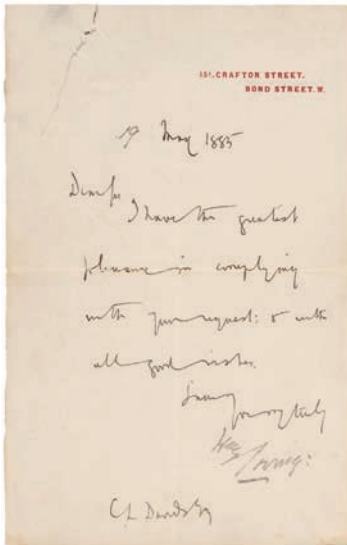 15A, GRAFTON STREET.
BOND STREET. W.
19 May 1885
Dear Sir
I have the greatest
pleasure in complying
with your request: & with
all good wishes.
I am
Yours truly
Henry Irving:
C L Davids Esq